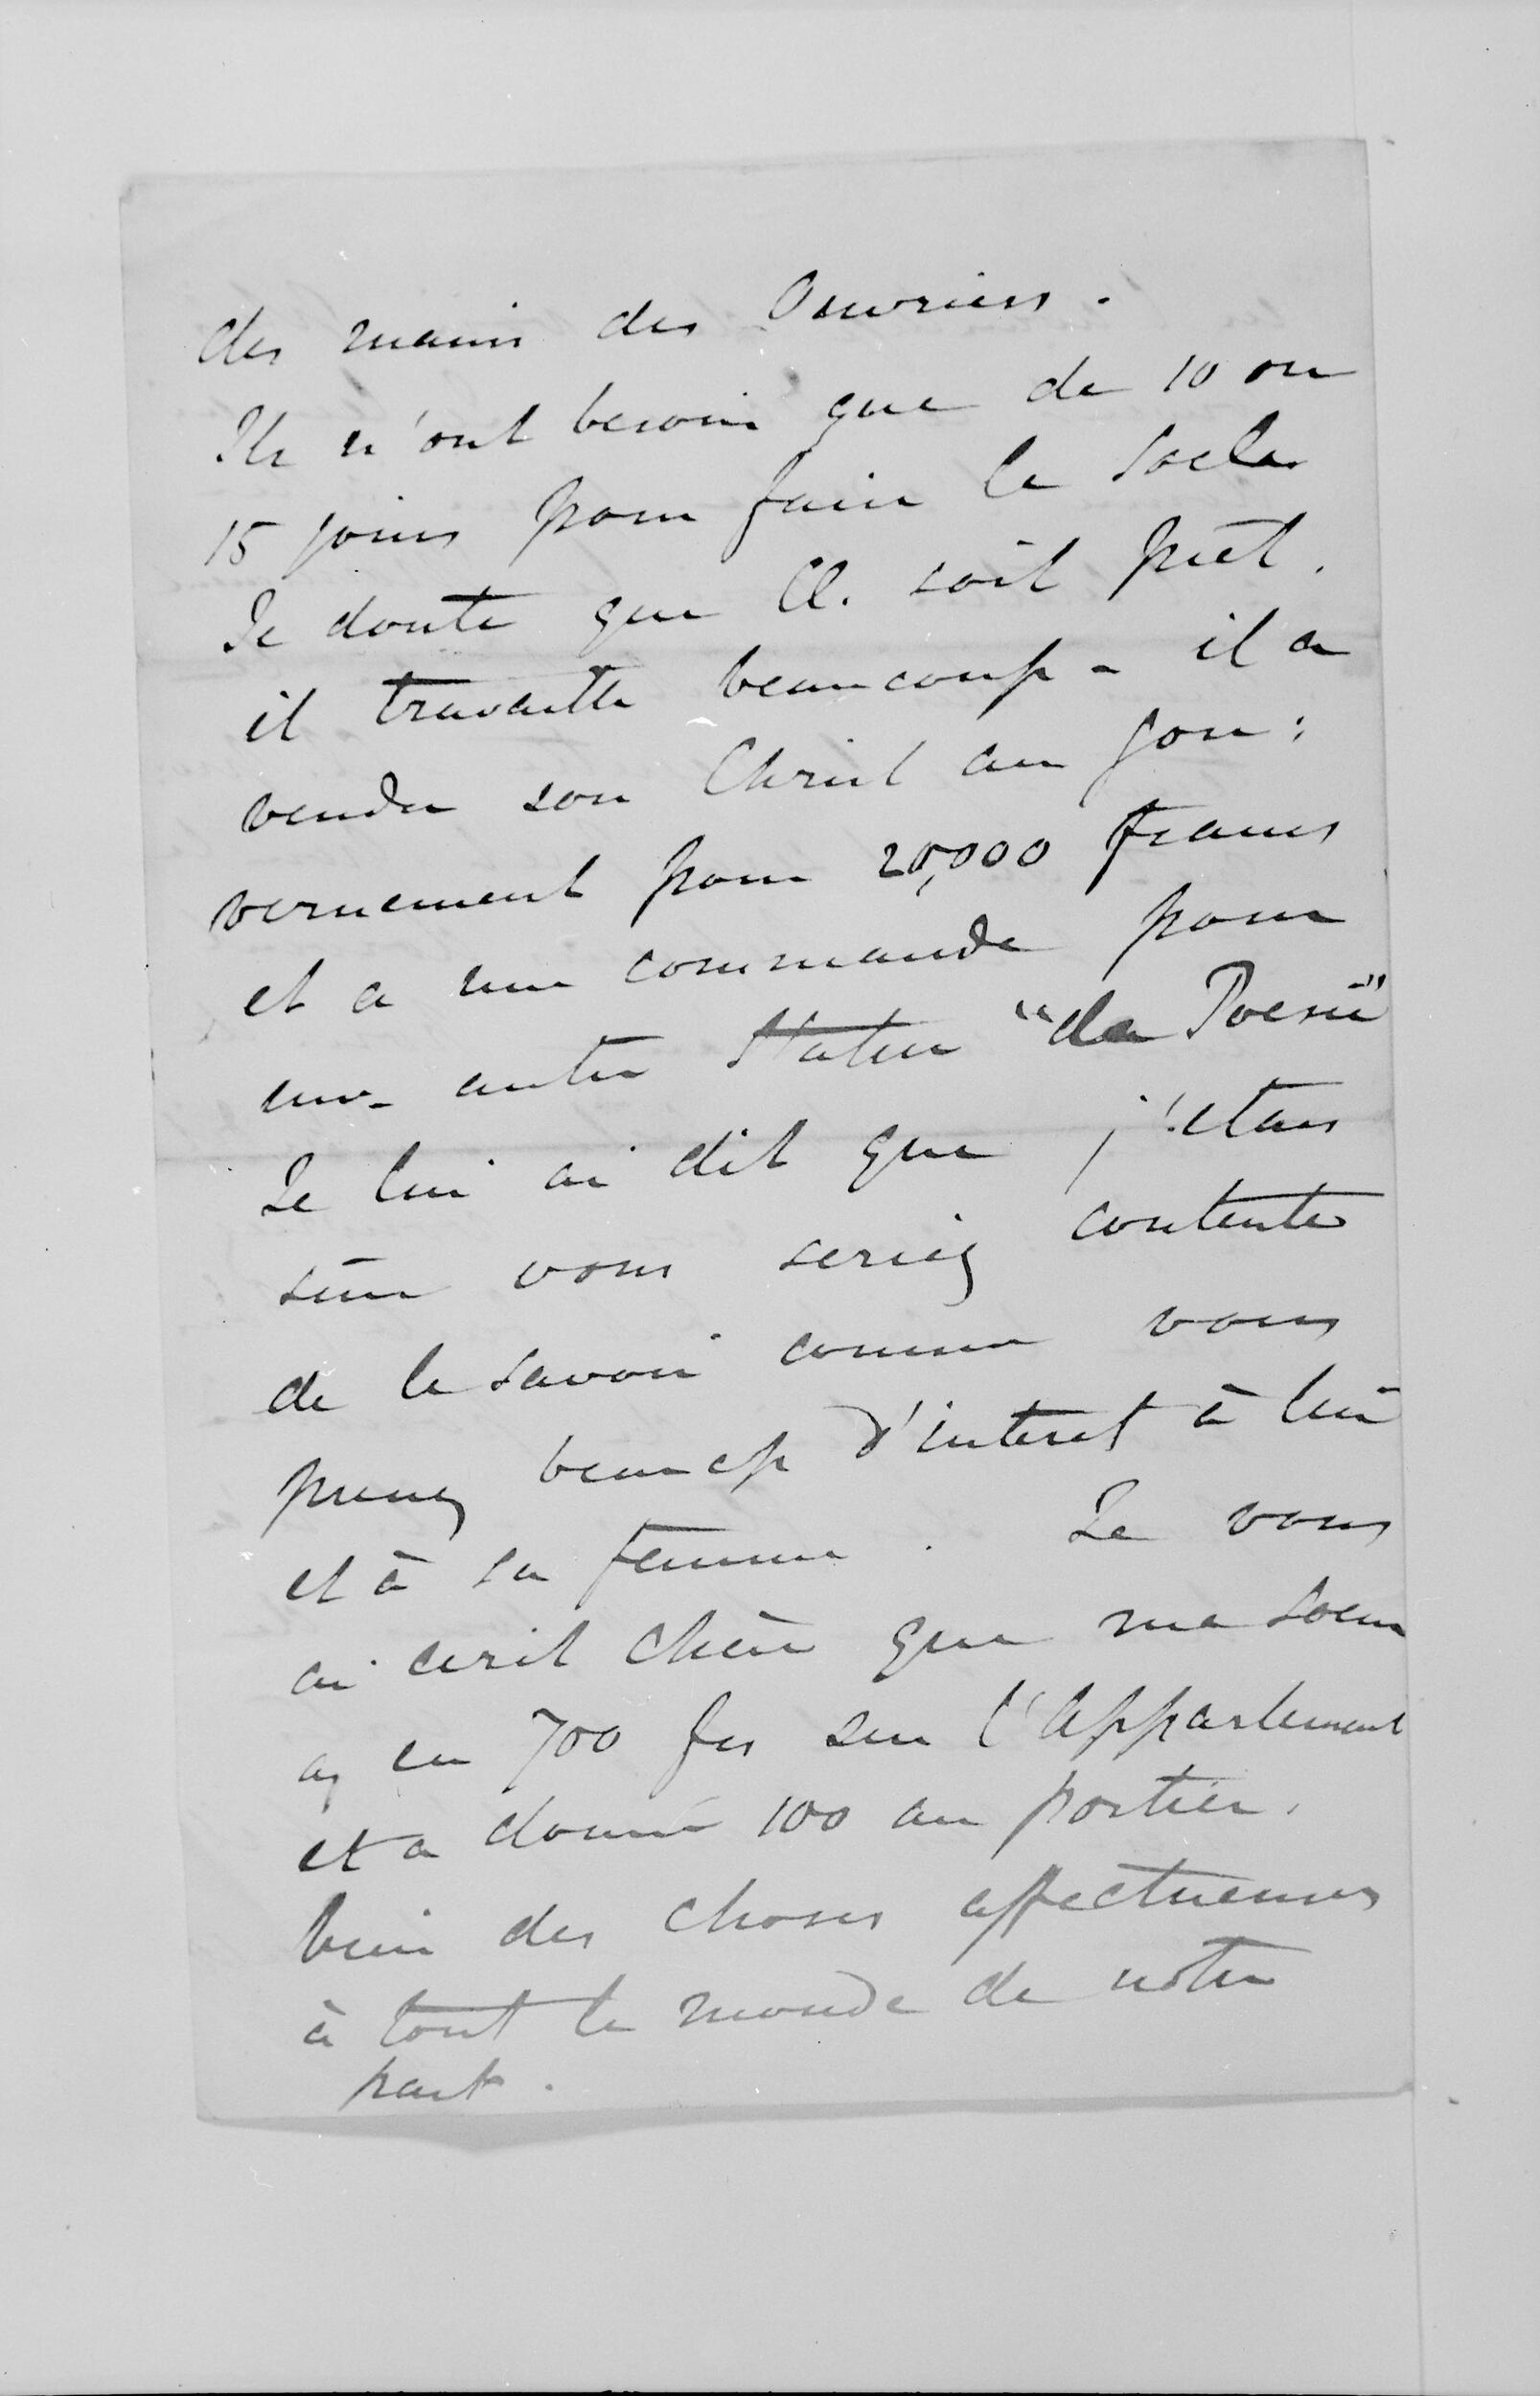 des mains des Ouvriers.
Ils n'ont besoin que de 10 ou
15 jours pour faire le Socle
Je doute que Cl. soit prêt.
il travaille beaucoup - il a
vendu son Christ au gou:
vernement pour 20,000 francs
et a une commande pour
une autre Statue "la Poesie"
Je lui ai dit que j'etais
sûre vous seriez contente
de le savoir comme vous
prenez beaucp d'interet à lui
et à sa femme. Je vous
ai ecrit chère que ma soeur
a eu 700 frs sur l'appartement
et a donné 100 au portier.
bien des choses affectueuses
à tout le monde de notre
part.